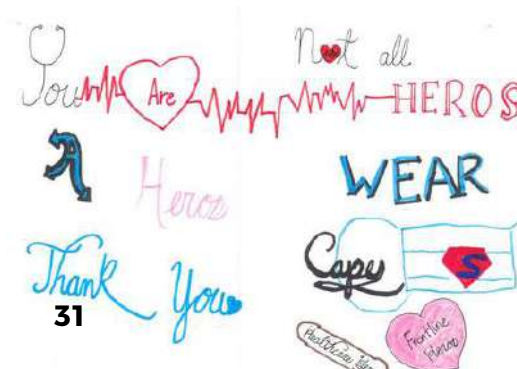 You Are
A Heros
Thank You
31
Not all
HEROS
WEAR
Capes
S
Healthcare
Frontline
Heros